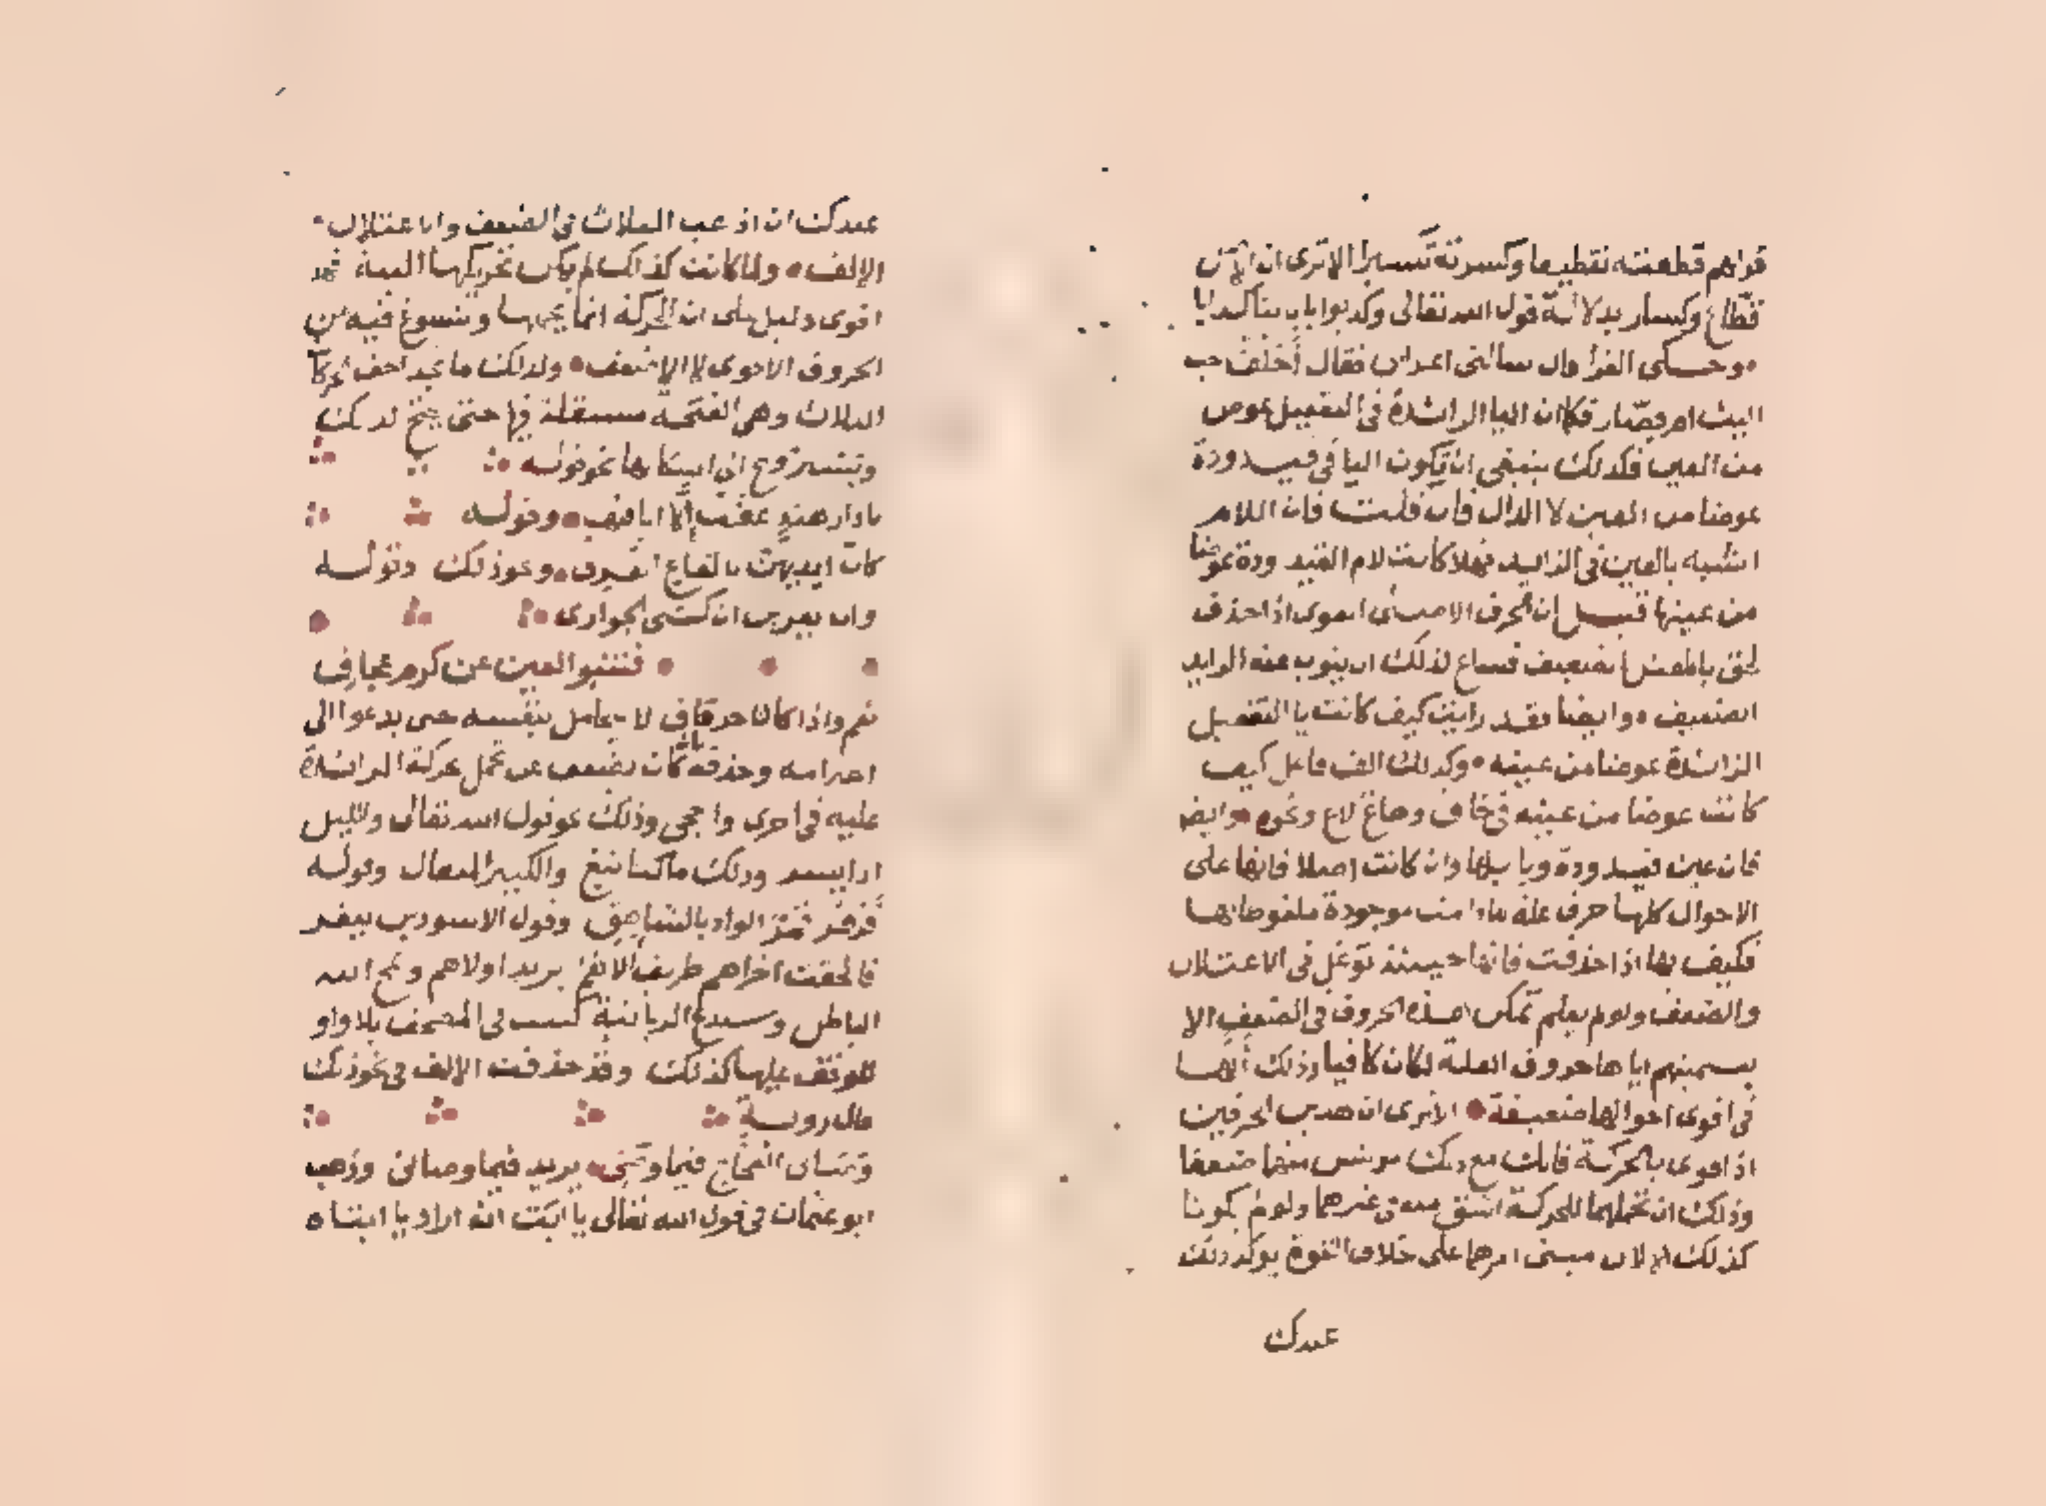 قولهم قطعته تقطيعا وكسرته تكسيرا الا ترى ان الاصل
قطاع وكسار بدلالة قول الله تعالى وكذبوا باياتنا كذابا
وحكى الفرا قال سالني اعرابي فقال أحلاق احب
اليك ام قصار فكما ان اليا الزائدة في التفعيل عوض
من العين فكذلك ينبغي ان تكون اليا في قيدودة
عوضا من العين لا الدال فان قلت فان اللام
اشبه بالعين في الزائد فهلا كانت لام القيدودة عوضا
من عينها قيل ان الحرف الاصلي القوي اذا حذف
لحق بالمعتل الضعيف فساغ لذلك ان ينوب عنه الزايد
الضعيف وايضا فقد رايت كيف كانت يا التفعيل
الزائدة عوضا من عينه وكذلك الف فاعل كيف
كانت عوضا من عينه في خاف وهاع لاع ونحوه وايضا
فان عين قيدودة وبابها وان كانت اصلا فانها على
الاحوال كلها حرف علة مادامت موجودة ملفوظا بها
فكيف بها اذا حذفت فانها حينئذ توغل في الاعتلال
والضعف ولو لم يعلم تمكن هذه الحروف في الضعف الا
بتسميتهم اياها حروف العلة لكان كافيا وذلك انها
في اقوى احوالها ضعيفة الا ترى ان هذين الحرفين
اذا قوى بالحركة فانك مع ذلك تونس منهما ضعفا
وذلك ان تحملهما للحركة اشق منه في غيرهما ولو لم يكونا
كذلك الا لان مبنى امرهما على خلاف القوة يوكد ذلك
عندك
عندك ان اذهب الثلاث في الضعف والاعتلال
الالف ولما كانت كذلك لم يكن تحريكها البتة فهذا
اقوى دليل على ان الحركة انما يحملها ويسوغ فيه من
الحروف الاقوى لا الاضعف ولذلك ما تجد اخف الحركات
الثلاث وهي الفتحة مستثقلة فيها حتى يجنح لذلك
ويستروح الى اسكانها نحو قوله
يا دار هند عفت إلا اثافيها وقوله
كان ايديهن بالقاع القرق ونحو ذلك وقوله
وان يعرين ان كسي الجواري
فتنبو العين عن كرم عجاف
نعم واذا كان الحرف لا يتحامل بنفسه حتى يدعو الى
اخترامه وحذفه كان بان يضعف عن تحمل الحركة الزائدة
عليه فيه احرى واحجى وذلك نحو قول الله تعالى والليل
اذا يسر وذلك ما كنا نبغ والكبير المتعال وقوله
قرقر قمر الواد بالشاهق وقول الاسود بن يعفر
فالحقت اخراهم طريق الاهم يريد اولاهم ويمح الله
الباطل وسندع الزبانية كتبت في المصحف بلا واو
للوقف عليها كذلك وقد حذفت الالف في نحو ذلك
قال روبة
وصاني العجاج فيما وصني يريد فيما وصاني وذهب
ابو عثمان في قول الله تعالى يا ابت انه اراد يا ابتاه